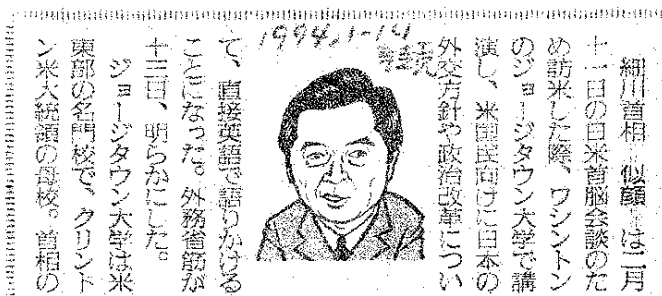 1994.1-14
細川首相=似顔=は二月
十一日の日米首脳会談のた
め訪米した際、ワシントン
のジョージタウン大学で講
演し、米国民向けに日本の
外交方針や政治改革につい
て、直接英語で語りかける
ことになった。外務省筋が
十三日、明らかにした。
ジョージタウン大学は米
東部の名門校で、クリント
ン米大統領の母校。首相の